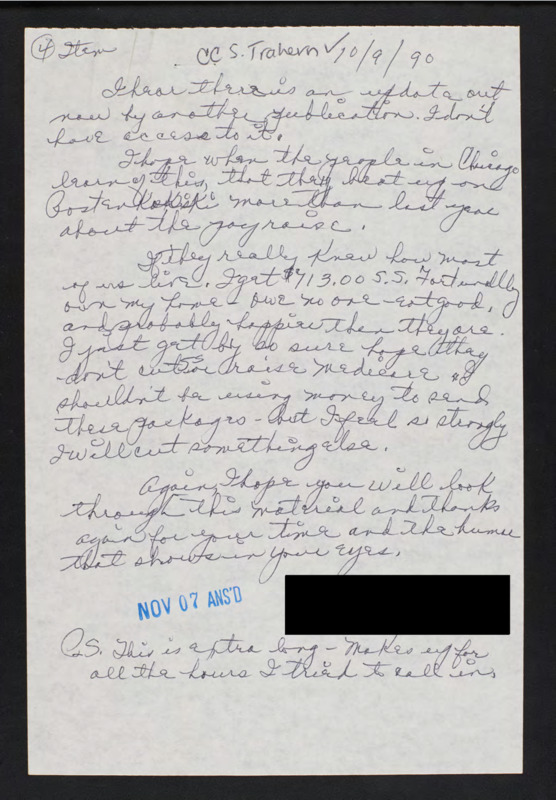 ④ Item
CC S. Trahern ✓ 10/9/90
I hear there is an update out
now by another publication. I don't
have access to it.
I hope when the people in Chicago
learn of this, that they beat up on
Rostenkowski more than last year
about the pay raise.
If they really knew how most
of us live. I get $713.00 S.S. Fortunately
own my home - owe no one - eat good,
and probably happier than they are.
I just get by so sure hope they
don't cut SS or raise medicare & I
shouldn't be using money to send
these packages - but I feel so strongly
I will cut something else.
Again, I hope you will look
through this material and thanks
again for your time and the humor
that shows in your eyes.
NOV 07 ANS'D
P.S. This is extra long - makes up for
all the hours I tried to call in.